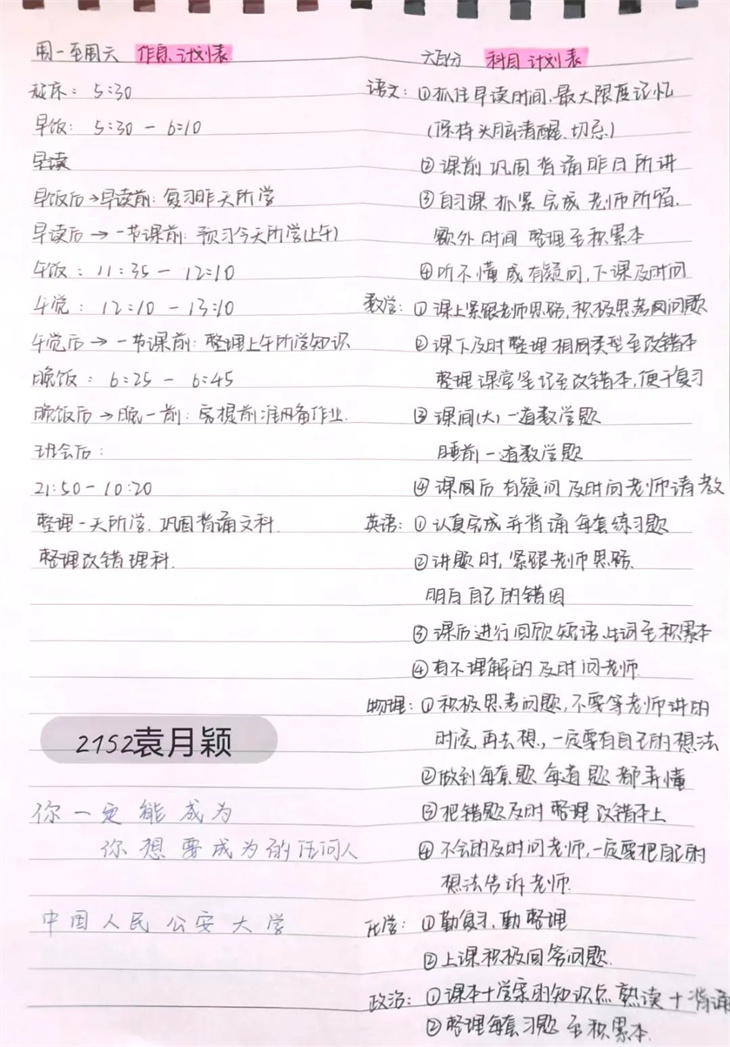 周一至周六 作息计划表
起床: 5:30
早饭: 5:30 - 6:10
早读
早饭后→早读前: 复习昨天所学
早读后→一节课前: 预习今天所学(上午)
午饭: 11:35 - 12:10
午觉: 12:10 - 13:10
午觉后→一节课前: 整理上午所学知识
晚饭: 6:25 - 6:45
晚饭后→晚一前: 提前准备作业.
班会后:
21:50 - 10:20
整理一天所学. 巩固背诵文科.
整理改错 理科.
2152袁月颖
你一定能成为
你想要成为的任何人
中国人民公安大学
六百分 科目计划表
语文: ①抓住早读时间, 最大限度记忆
(保持头脑清醒, 切忌)
②课前巩固背诵昨日所讲
③自习课抓紧完成老师所留.
额外时间整理至积累本
④听不懂或有疑问, 下课及时问
数学: ①课上紧跟老师思路, 积极思考问题
②课下及时整理相同类型至改错本
整理课堂笔记至改错本, 便于复习
③课间(大)一道数学题
睡前一道数学题
④课间后有疑问及时问老师请教
英语: ①认真完成并背诵每套练习题
②讲题时, 紧跟老师思路.
明白自己的错因
③课后进行回顾短语、生词至积累本
④有不理解的及时问老师.
物理: ①积极思考问题, 不要等老师讲的
时候再去想, 一定要有自己的想法
②做到每套题每道题都弄懂
③把错题及时整理改错本上
④不会的及时问老师, 一定要把自己的
想法告诉老师.
化学: ①勤复习, 勤整理
②上课积极回答问题.
政治: ①课本+学案的知识点熟读+背诵
②整理每套习题至积累本.